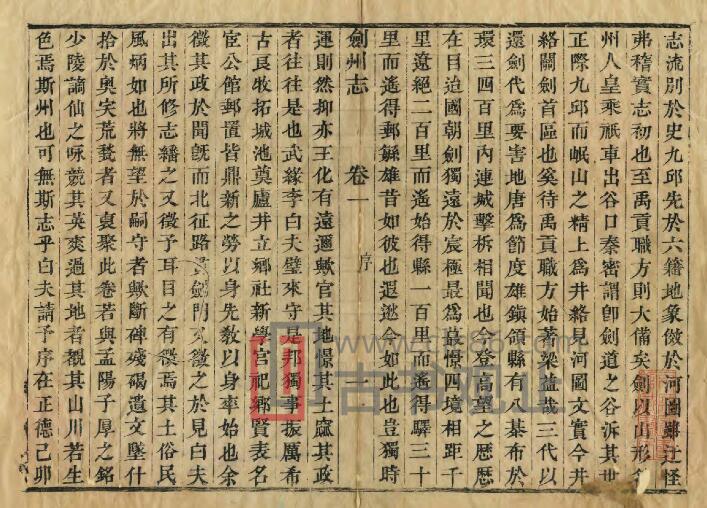 志流別於史九邱先於六籍地象倣於河圖雖迂怪
弗稽實志初也至禹貢職方則大備矣劍以山形
州人皇乘祇車出谷口秦密謂卽劍道之谷泝其世
正際九邱而岷山之精上爲井絡見河圖文實今井
絡關劍首區也奚待禹貢職方始著梁益哉三代以
還劍代爲要害地唐爲節度雄鎭領縣有八棊布於
環三四百里內連城擊柝相聞也今登首望之歷歷
在目迨國朝劍獨遠於宸極最爲最憬四境相距千
里遼絕二百里而遙始得縣一百里而遙得驛三十
里而遙得郵繇雄昔如彼也遐逖今如此也豈獨時
劍州志 卷一 序
運則然抑亦王化有遠邇歟官其地憬其土寙其政
者往往是也武緣李白夫璧來守是邦獨事振厲希
古良牧拓城池奠廬井立鄉社新學宮祀鄉賢表名
宦公館郵置皆鼎新之勞以身先敎以身率始也余
徵其政於聞旣而北征路劍門又徵之於見白夫
出其所修志繙之又徵予耳目之有徵焉其土俗民
風炳如也將無望於嗣守者歟斷碑殘碣遺文墜什
拾於奧穾荒蓁者又裒聚此卷若與孟陽子厚之銘
少陵謫仙之咏競其英爽過其地者覩其山川若生
色焉斯州也可無斯志乎白夫請予序在正德己卯